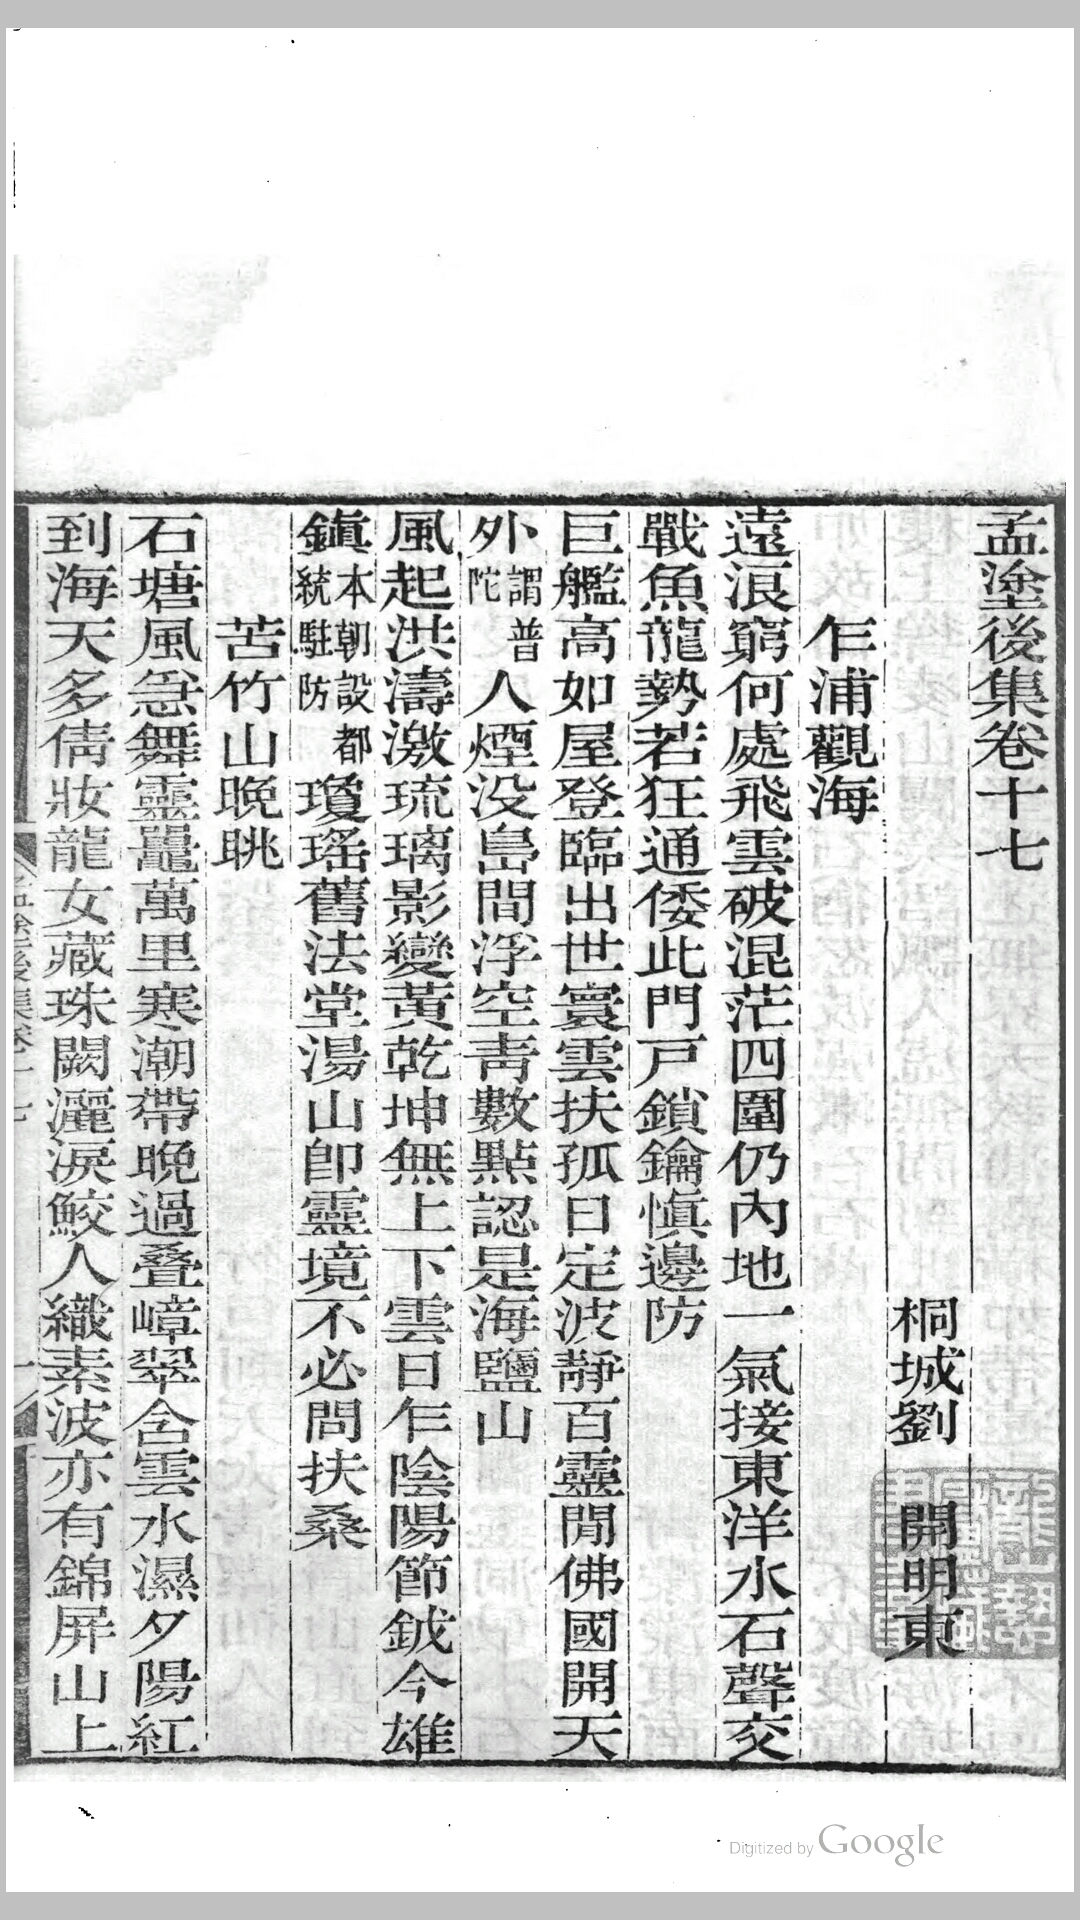 孟塗後集卷十七
桐城劉 開明東
乍浦觀海
遠浪窮何處飛雲破混茫四圍仍內地一氣接東洋水石聲交
戰魚龍勢若狂通倭此門戸鎖鑰慎邊防
巨艦高如屋登臨出世寰雲扶孤日定波靜百靈閒佛國開天
外謂普陀人煙没島間浮空青數點認是海鹽山
風起洪濤激琉璃影變黃乾坤無上下雲日乍陰陽節鉞今雄
鎮本朝設都統駐防瓊瑤舊法堂湯山卽靈境不必問扶桑
苦竹山晚眺
石塘風急舞靈鼉萬里寒潮帶晚過叠嶂翠含雲水濕夕陽紅
到海天多倩妝龍女藏珠闕灑淚鮫人織素波亦有錦屏山上
孟塗後集卷十七
一
Digitized by Google